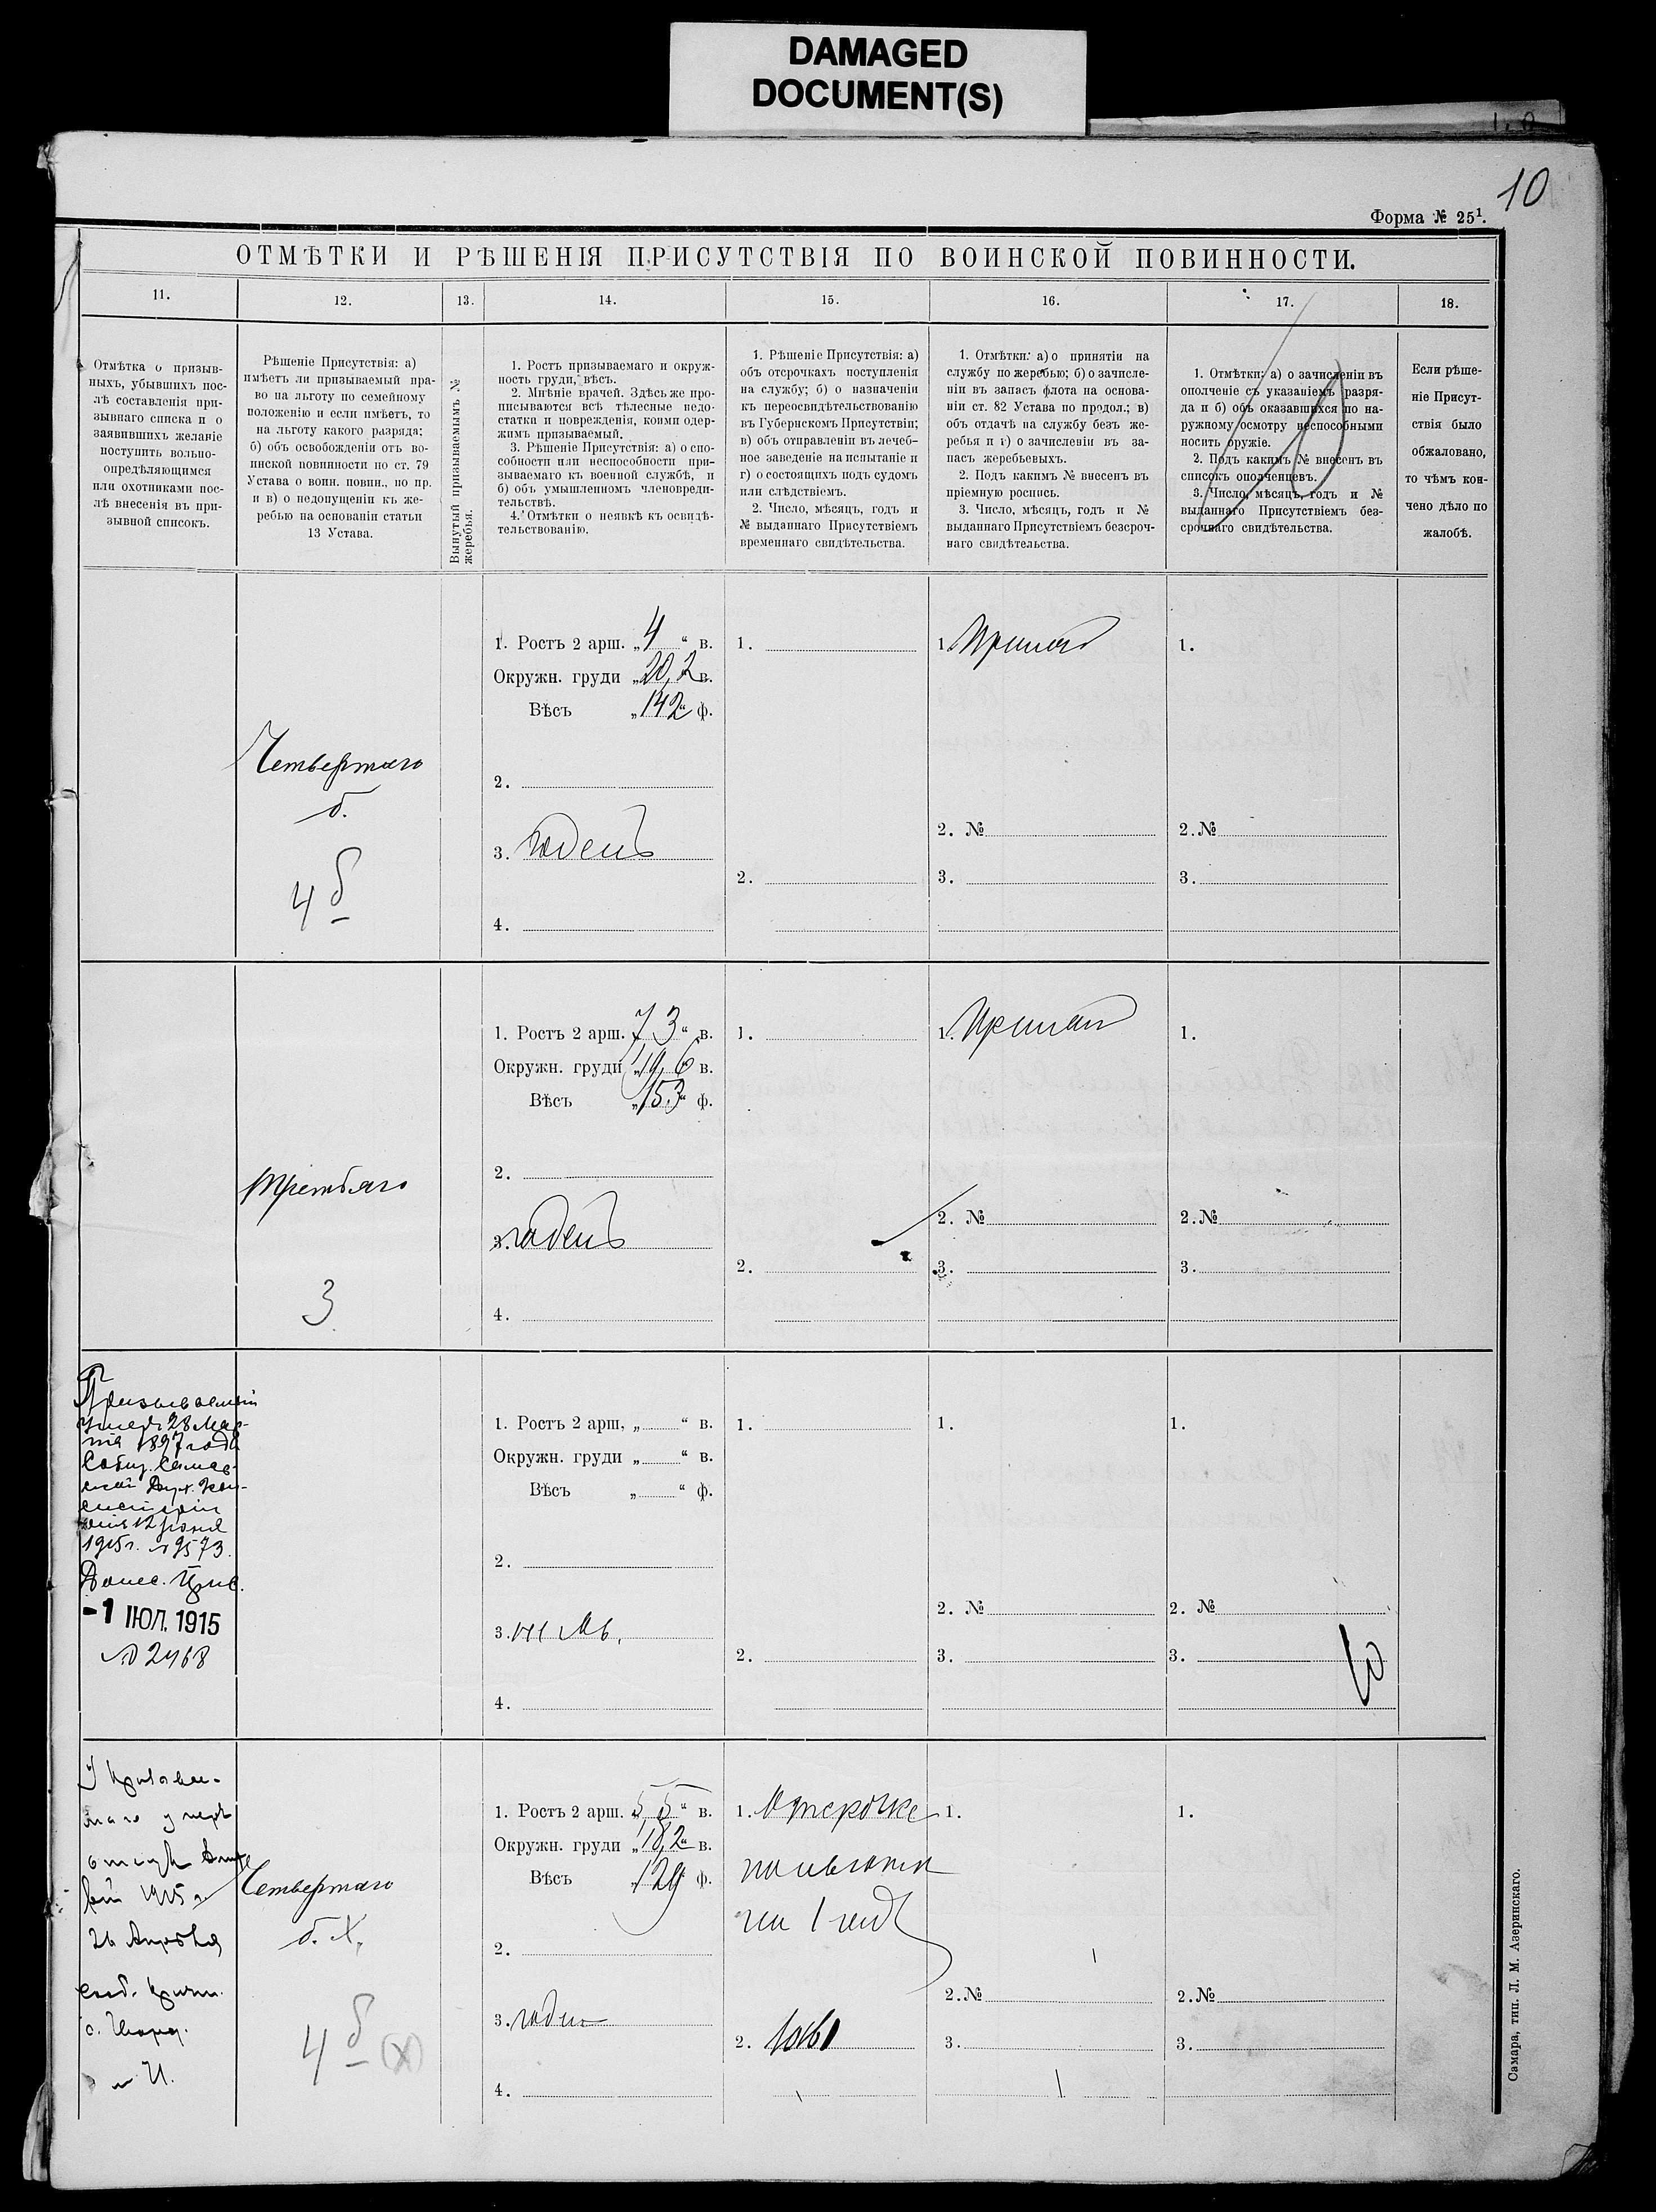 DAMAGED
DOCUMENT(S)
10
Форма № 25¹.
ОТМѢТКИ И РѢШЕНІЯ ПРИСУТСТВІЯ ПО ВОИНСКОЙ ПОВИННОСТИ.
11.
12.
13.
14.
15.
16.
17.
18.
Отмѣтка о призыв-
ныхъ, убывшихъ пос-
лѣ составленія при-
зывнаго списка и о
заявившихъ желаніе
поступить вольно-
опредѣляющимся
или охотниками пос-
лѣ внесенія въ при-
зывной списокъ.
Рѣшеніе Присутствія: а)
имѣетъ ли призываемый пра-
во на льготу по семейному
положенію и если имѣетъ, то
на льготу какого разряда;
б) объ освобожденіи отъ во-
инской повинности по ст. 79
Устава о воин. повин., но пр.
и в) о недопущеніи къ же-
ребью на основаніи статьи
13 Устава.
Вынутый призываемымъ №
жеребья.
1. Ростъ призываемаго и окруж-
ность груди, вѣсъ.
2. Мнѣніе врачей. Здѣсь же про-
писываются всѣ тѣлесные недо-
статки и поврежденія, коими одер-
жимъ призываемый.
3. Рѣшеніе Присутствія: а) о спо-
собности или неспособности при-
зываемаго къ военной службѣ, и
б) объ умышленномъ членовреди-
тельствѣ.
4. Отмѣтки о неявкѣ къ освидѣ-
тельствованію.
1. Рѣшеніе Присутствія: а)
объ отсрочкахъ поступленія
на службу; б) о назначеніи
къ переосвидѣтельствованію
въ Губернскомъ Присутствіи;
в) объ отправленіи въ лечеб-
ное заведеніе на испытаніе и
г) о состоящихъ подъ судомъ
или слѣдствіемъ.
2. Число, мѣсяцъ, годъ и
№ выданнаго Присутствіемъ
временнаго свидѣтельства.
1. Отмѣтки: а) о принятіи на
службу по жеребью; б) о зачисле-
ніи въ запасъ флота на основа-
ніи ст. 82 Устава по продол.; в)
объ отдачѣ на службу безъ же-
ребья и г) о зачисленіи въ за-
пасъ жеребьевыхъ.
2. Подъ какимъ № внесенъ въ
пріемную роспись.
3. Число, мѣсяцъ, годъ и №
выданнаго Присутствіемъ безсроч-
наго свидѣтельства.
1. Отмѣтки: а) о зачисленіи въ
ополченіе съ указаніемъ разря-
да и б) объ оказавшихся по на-
ружному осмотру неспособными
носить оружіе.
2. Подъ какимъ № внесенъ въ
списокъ ополченцевъ.
3. Число, мѣсяцъ, годъ и №
выданнаго Присутствіемъ без-
срочнаго свидѣтельства.
Если рѣше-
ніе Присут-
ствія было
обжаловано,
то чѣмъ кон-
чено дѣло по
жалобѣ.
Четвертаго
б.
4 б
1. Ростъ 2 арш. „4“ в.
Окружн. груди „20,2 в.
Вѣсъ „142“ ф.
2.
3. годенъ
4.
1.
2.
1. Принят
2. №
3.
1.
2. №
3.
Третьяго
3
1. Ростъ 2 арш. 7 3 “ в.
Окружн. груди „19,6 в.
Вѣсъ „153“ ф.
2.
3. годенъ
4.
1.
2.
1. Принят
2. №
3.
1.
2. №
3.
Призываемый
умеръ 28 Мар-
та 1897 года
Сообщ. Самар-
ской Дух. Кон-
систоріи
12 Іюня
1915 г. № 9573.
Донес. Прис.
-1 ІЮЛ. 1915
№ 2468
1. Ростъ 2 арш. „ “ в.
Окружн. груди „ “ в.
Вѣсъ „ “ ф.
2.
3.
4.
1.
2.
1.
2. №
3.
1.
2. №
3.
10
умеръ
1915 г.
26 Апрѣля
Четвертаго
б. X.
4 б (X)
1. Ростъ 2 арш. 5,5 “ в.
Окружн. груди „18,2“ в.
Вѣсъ „129 ф.
2.
3. годен
4.
1. Отсрочке
на 1 годъ
2.
1.
2. №
3.
1.
2. №
3.
Самара, тип. Л. М. Азеринскаго.